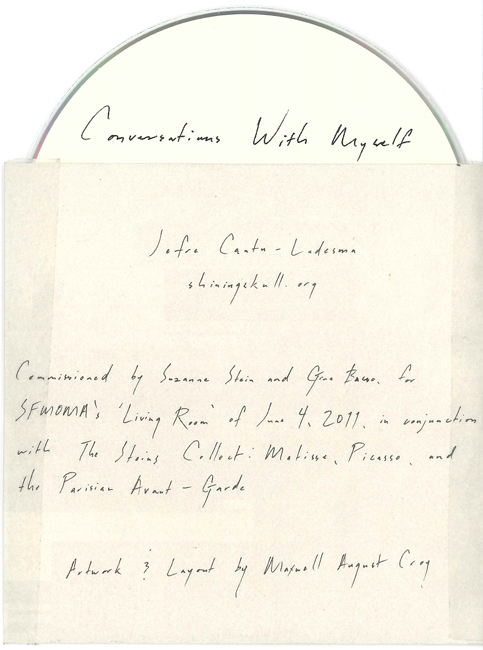 Conversations With Myself
Jefre Cantu-Ledesma
shiningskull.org
Commissioned by Suzanne Stein and Gina Basso, for
SFMOMA's 'Living Room' of June 4, 2011, in conjunction
with The Steins Collect: Matisse, Picasso, and
the Parisian Avant-Garde
Artwork & Layout by Maxwell August Croy